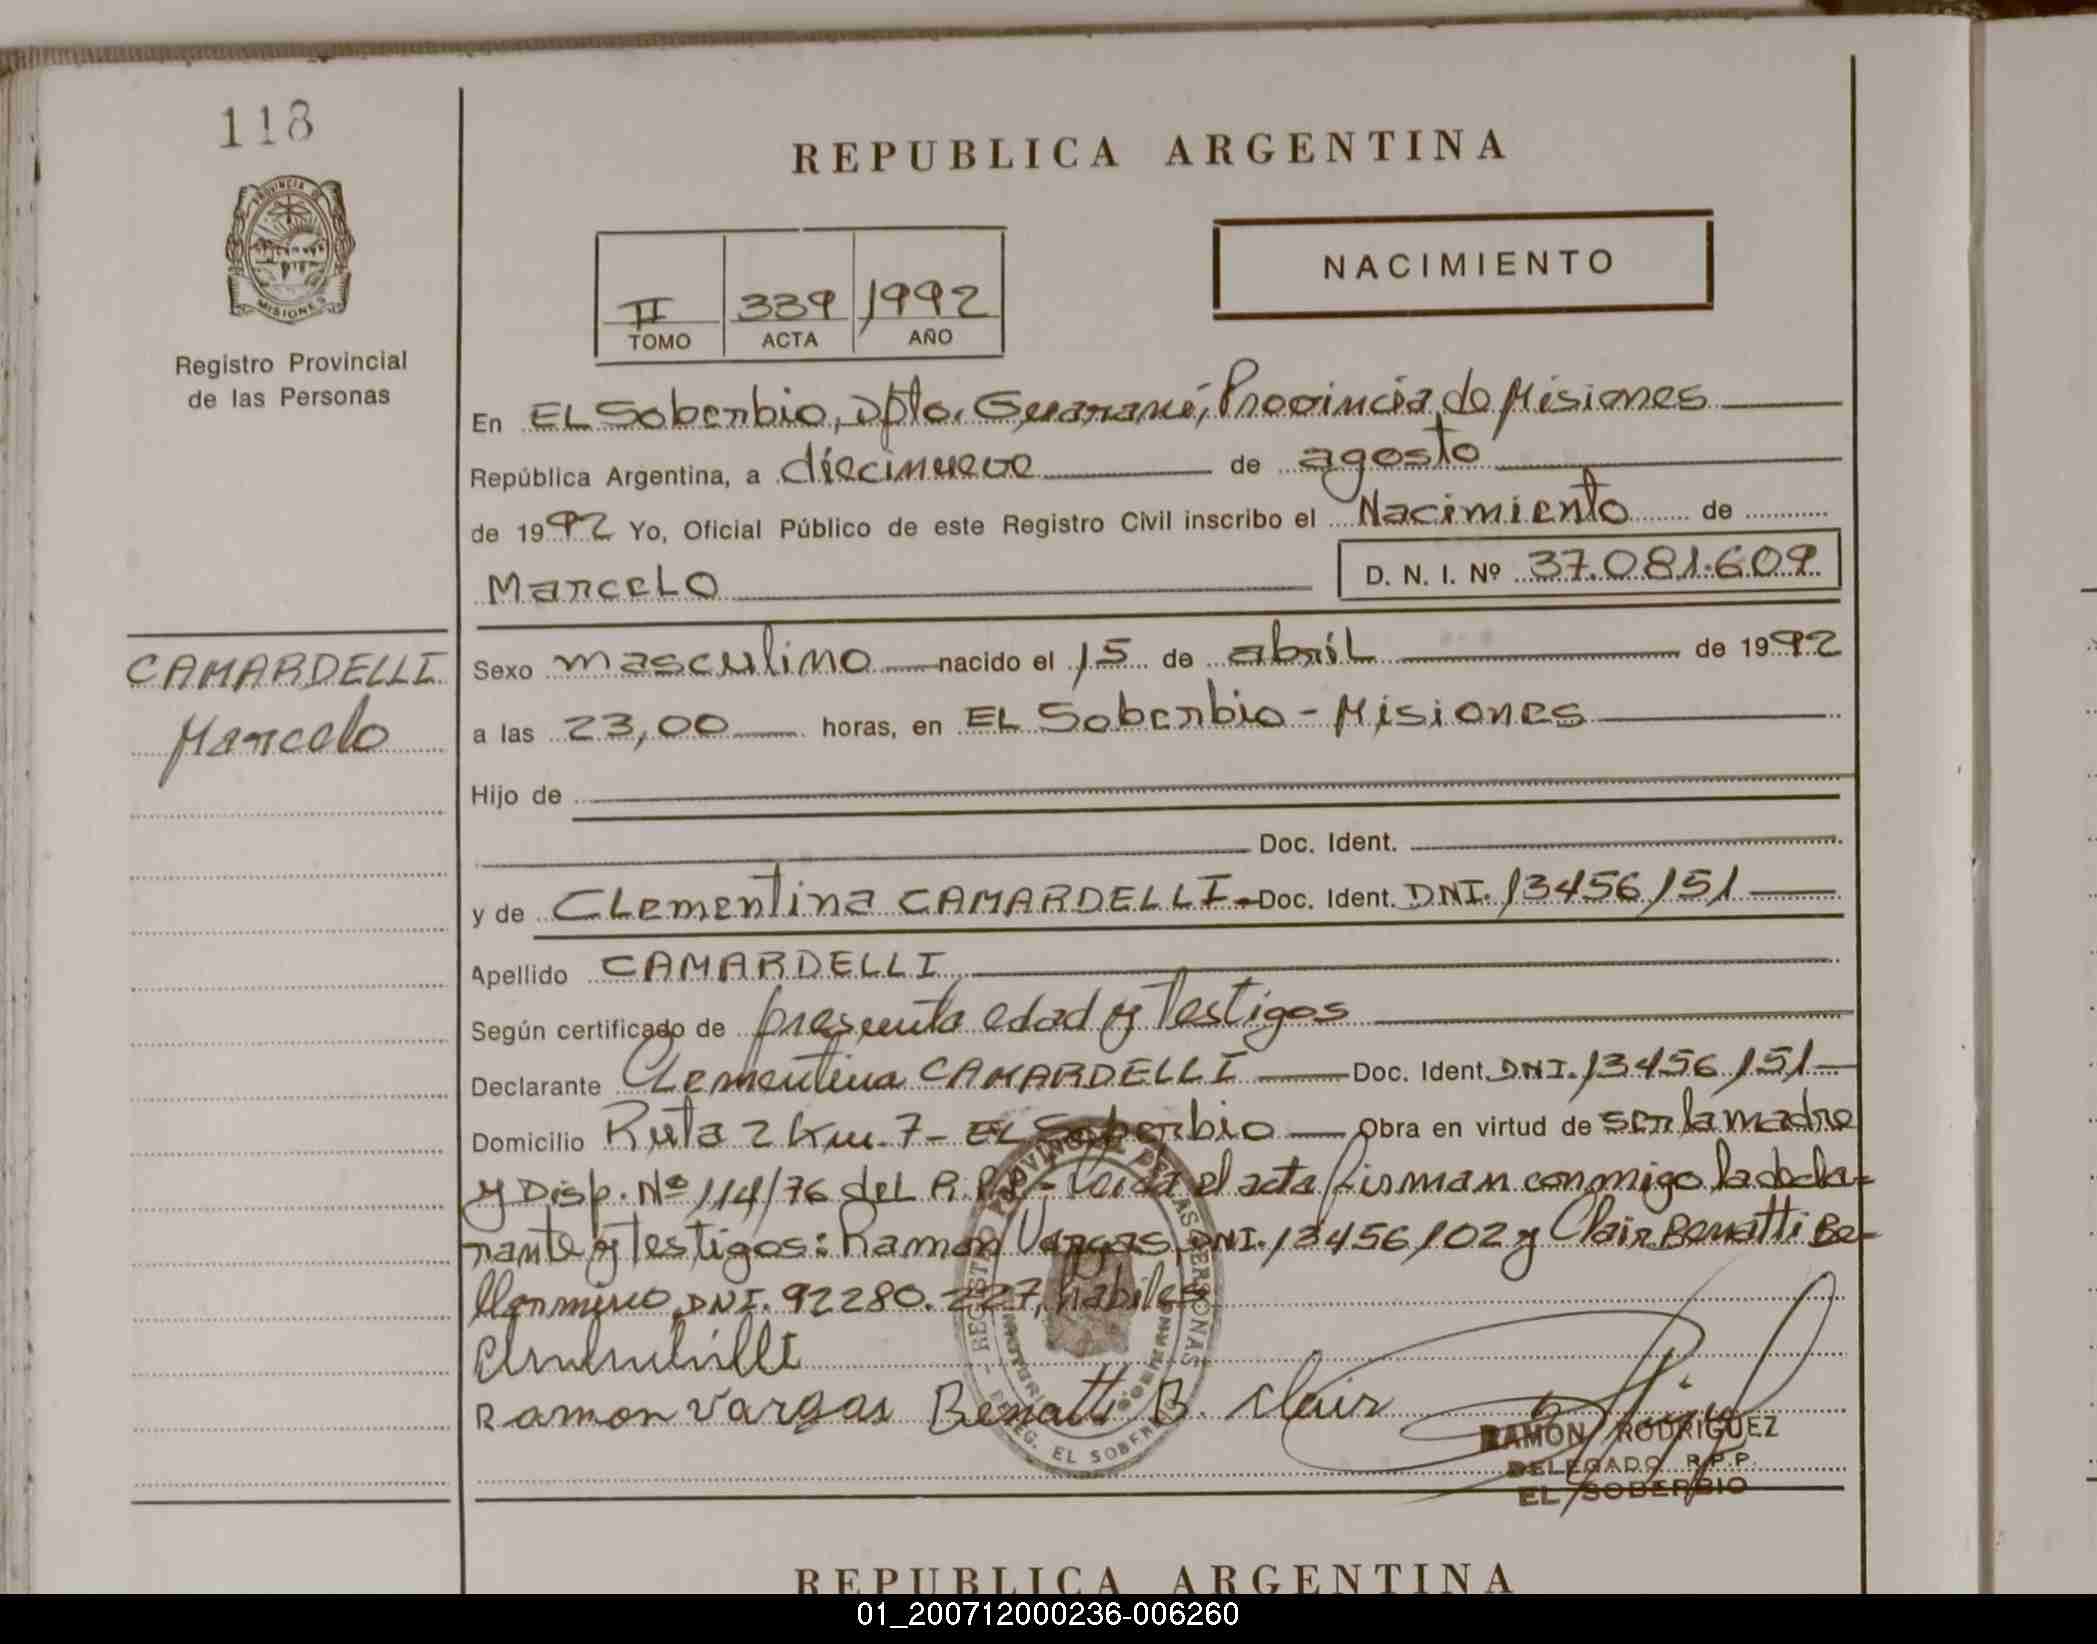 118
REPUBLICA ARGENTINA
PROVINCIA D
MISIONES
Registro Provincial
de las Personas
II 339 1992
TOMO ACTA AÑO
NACIMIENTO
En EL Soberbio, Dpto. Guaraní, Provincia de Misiones
República Argentina, a diecinueve de agosto
de 1992 Yo, Oficial Público de este Registro Civil inscribo el Nacimiento de
Marcelo D. N. I. Nº 37.081.609
CAMARDELLI
Marcelo
Sexo masculino nacido el 15 de abril de 1992
a las 23,00 horas, en EL Soberbio - Misiones
Hijo de
Doc. Ident.
y de Clementina CAMARDELLI Doc. Ident. DNI. 13456151
Apellido CAMARDELLI
Según certificado de presunta edad y Testigos
Declarante Clementina CAMARDELLI Doc. Ident. DNI. 13456151
Domicilio Ruta 2 Km. 7 - EL Soberbio Obra en virtud de ser la madre
y Disp. Nº 114/76 del R.P.P. - Leida el acta firman conmigo la decla-
rante y Testigos: Ramon Vargas, DNI. 13456102 y Clair Benatti Be-
llermino DNI. 92280.227, habiles
Ramon Vargas Benatti B. Clair
RAMON RODRIGUEZ
DELEGADO R.P.P.
EL SOBERBIO
REPUBLICA ARGENTINA
01_200712000236-006260